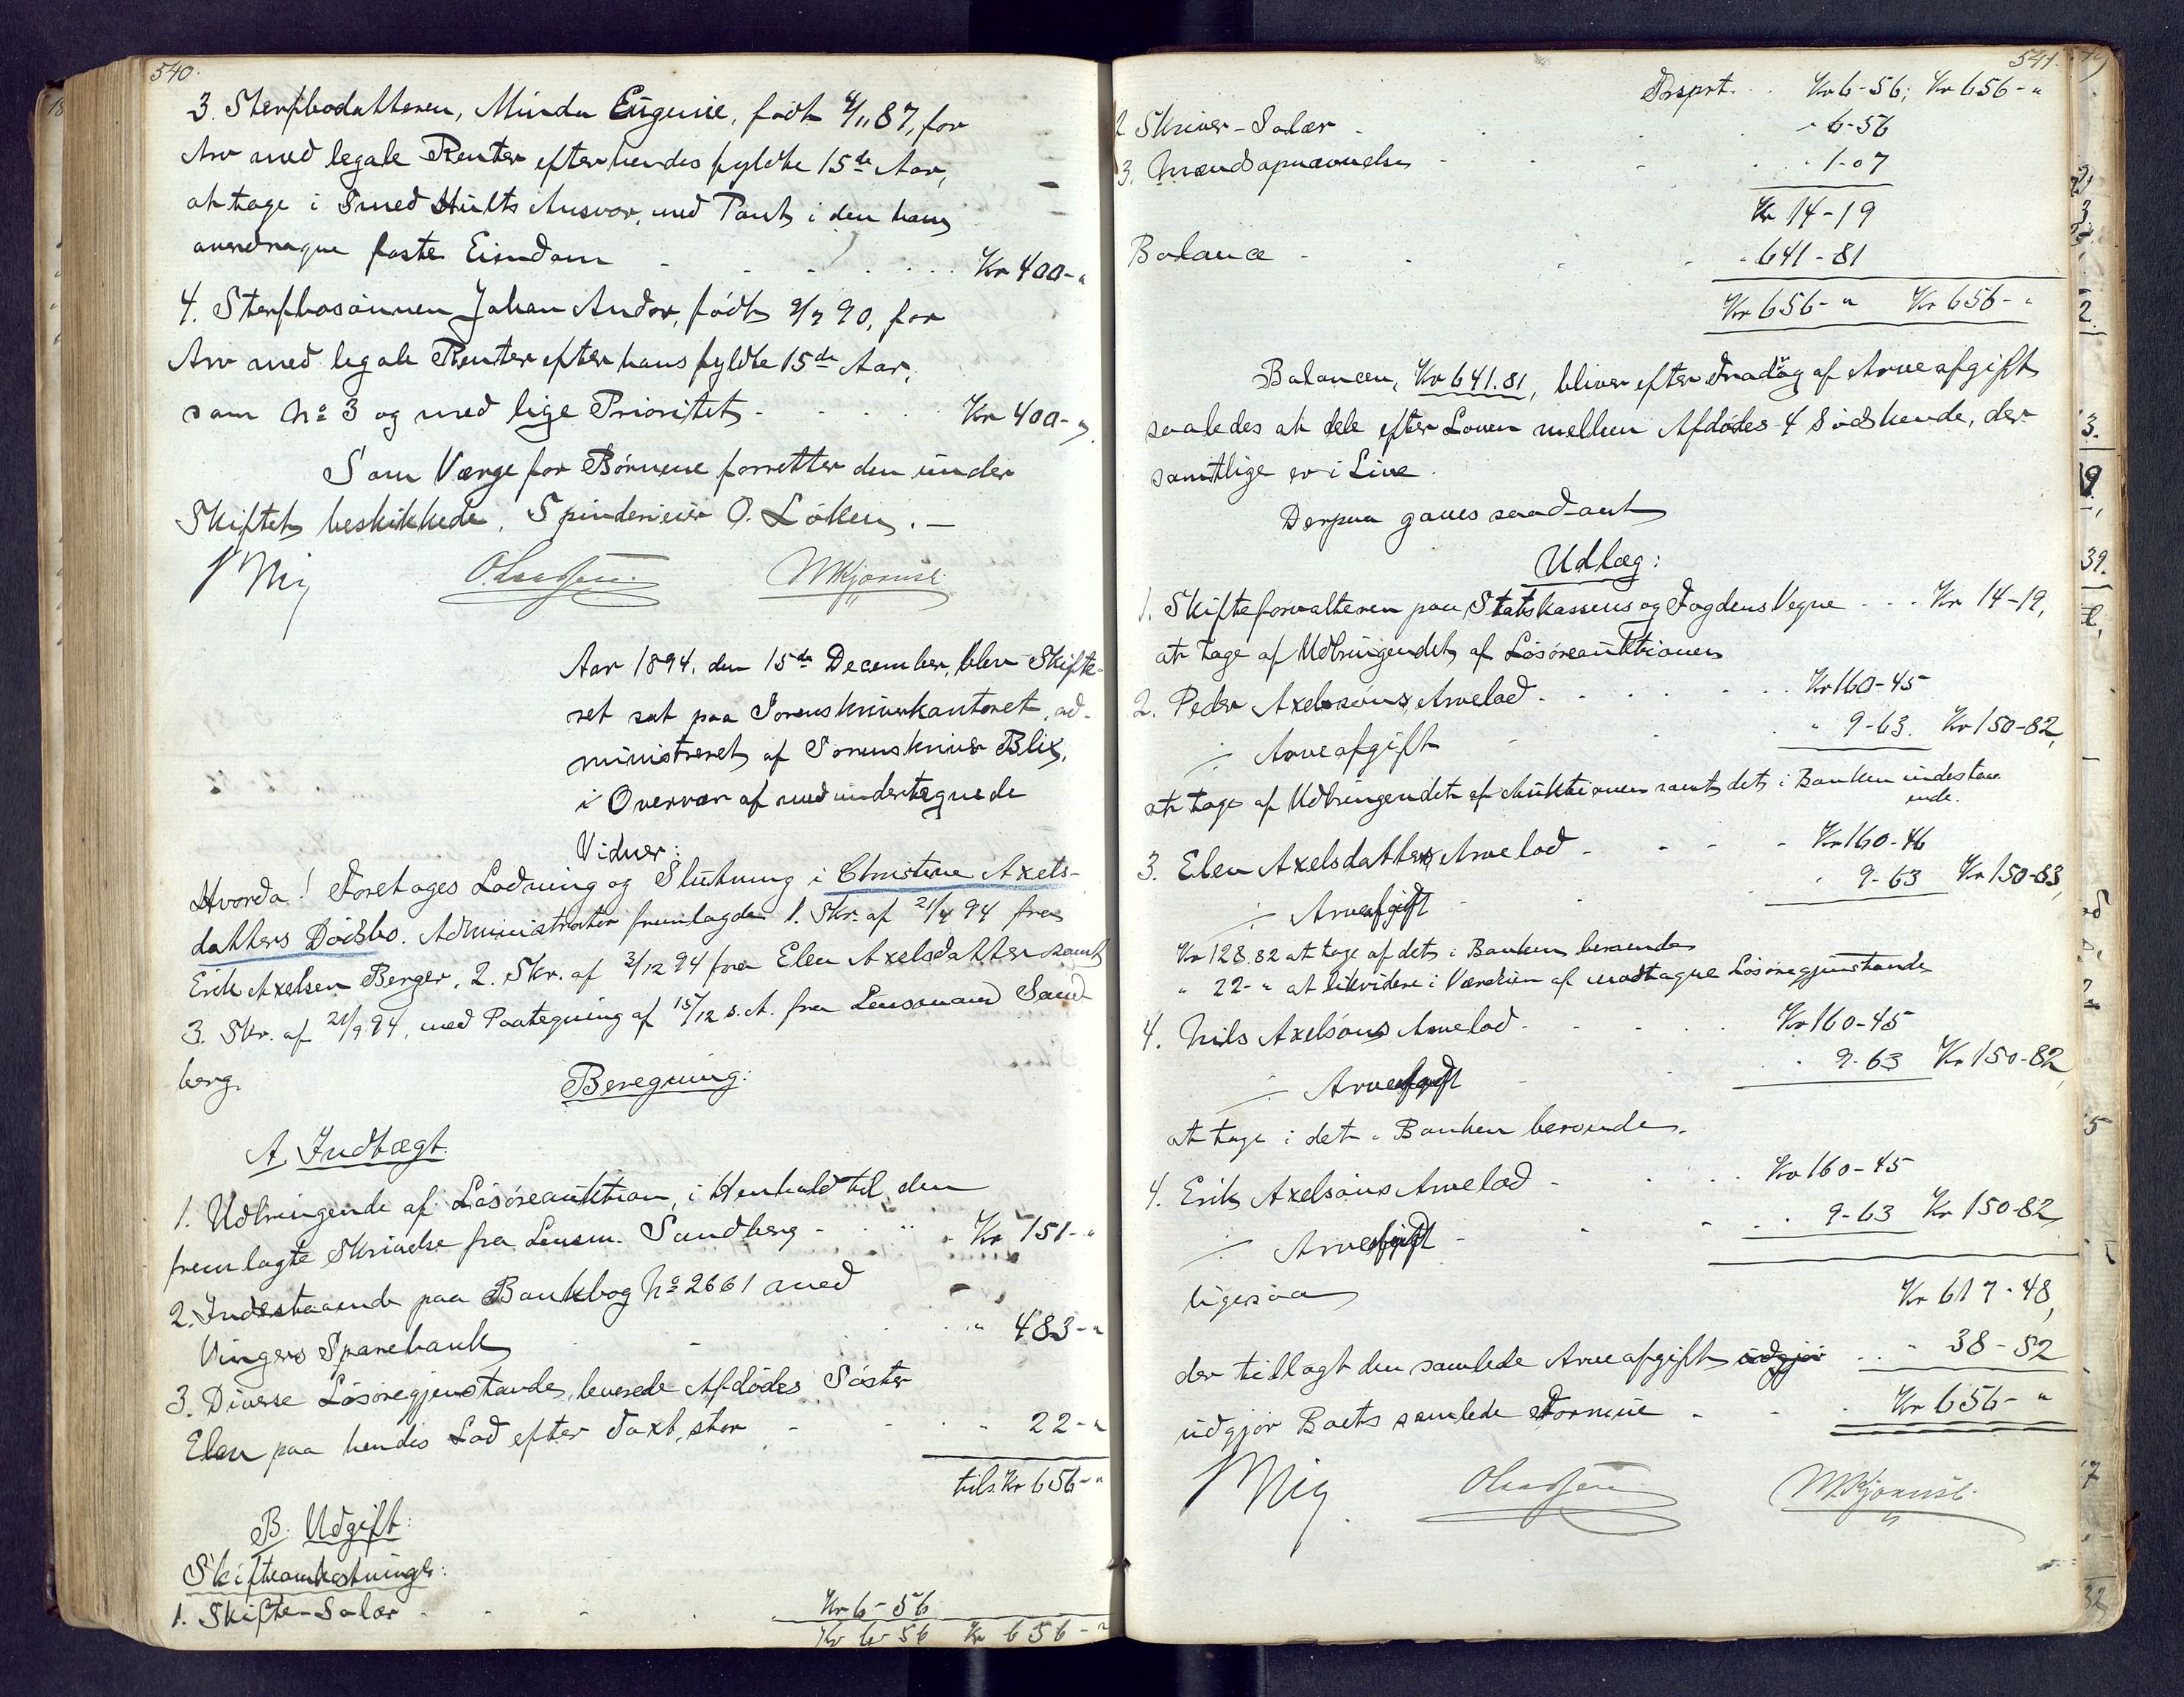 540.
3. Sterfbodatteren, Minda Eugenie, født 4/11 87, for
Arv med legale Renter efter hendes fyldte 15de Aar,
at tage i Smed Hults Ansvar, med Pant i den ham
overdragne faste Eiendom . . . . . . Kr 400-"
4. Sterfbosønnen Johan Andor, født 9/7 90, for
Arv med legale Renter efter hans fyldte 15de Aar,
som No 3 og med lige Prioritet . . . . Kr 400-"
Som Værge for Børnene forretter den under
Skiftet beskikkede, Spinderieier O. Løken. —
Aar 1894. den 15de December, blev Skifte-
ret sat paa Sorenskriverkontoret, ad-
ministreret af Sorenskriver Blix,
i Overvær af medundertegnede
Vidner:
Hvorda! Foretoges Lodning og Slutning i Christine Axels-
datters Dødsbo. Administrator fremlagde 1. Skr. af 21/4 94 fra
Erik Axelsen Berger, 2. Skr. af 3/12 94 fra Elen Axelsdatter samt
3. Skr. af 21/9 94, med Paategning af 15/12 s. A. fra Lensmand Sand-
berg.
Beregning:
A. Indtægt.
1. Udbringende af Løsøreauktion, i Henhold til den
fremlagte Skrivelse fra Lensm. Sandberg - . . Kr 151-"
2. Indestaaende paa Bankbog No 2661 med
Vingers Sparebank . . . " 483-"
3. Diverse Løsøregjenstande, leverede Afdødes Søster
Elen paa hendes Lod efter Taxt, stor - . . - 22-"
tils. Kr 656-"
B. Udgift:
Skifteomkostninger:
1. Skifte-Salær . . . Kr 6-56
Kr 6-56 Kr 656-"
541.
Trsprt. . . Kr 6-56; Kr 656-"
2 Skriver-Salær . . . - 6-56
3. Mændsopnævnelse . . . . 1-07
Kr 14-19
Balance . . . . - 641-81
Kr 656-" Kr 656-"
Balancen, Kr 641.81, bliver efter Fradrag af Arveafgift
saaledes at dele efter Loven mellem Afdødes 4 Sødskende, der
samtlige er i Live.
Derpaa gaves saadant
Udlæg:
1. Skifteforvalteren paa Statskassens og Fogdens Vegne . . . Kr 14-19,
at tage af Udbringendet af Løsøreauktionen
2. Peder Axelsøns Arvelod . . . . . Kr 160-45
÷ Arveafgift . . . " 9-63. Kr 150-82,
at tage af Udbringendet af Auktionen samt det i Banken indestaa-
ende.
3. Elen Axelsdatters Arvelod - . . - Kr 160-46
÷ Arveafgift . . . 9-63 Kr 150-83,
Kr 128.82 at tage af det i Banken beroende
" 22-" at likvidere i Værdien af modtagne Løsøregjenstande
4. Nils Axelsøns Arvelod . . . . Kr 160-45
÷ Arveafgift . . . 9-63 Kr 150-82,
at tage i det i Banken beroende.
4. Erik Axelsøns Arvelod - . . . Kr 160-45
÷ Arveafgift - . . . . 9-63 Kr 150-82,
ligesaa
Kr 617-48,
der tillagt den samlede Arveafgift udgjør . . " 38-52
udgjør Boets samlede Formue - . . Kr 656-"